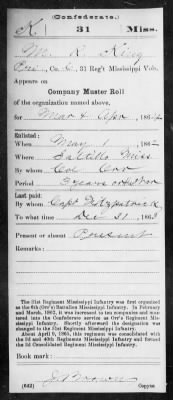 (Confederate.)
K 31 Miss.
M. R. King
Pvt, Co. C, 31 Reg't Mississippi Vols.
Appears on
Company Muster Roll
of the organization named above,
for Mar & Apr, 1864
Enlisted:
When May 1, 1862
Where Saltillo Miss
By whom Col Orr
Period 3 years or the War
Last paid:
By whom Capt Fitzpatrick
To what time Dec 31, 1863
Present or absent Present
Remarks:
The 31st Regiment Mississippi Infantry was first organized
as the 6th (Orr's) Battalion Mississippi Infantry. In February
and March, 1862, it was increased to ten companies and mustered
into the Confederate service as Orr's Regiment Mississippi
Infantry. Shortly afterward the designation was
changed to the 31st Regiment Mississippi Infantry.
About April 9, 1865, this regiment was consolidated with
the 33d and 40th Regiments Mississippi Infantry and formed
the 3d Consolidated Regiment Mississippi Infantry.
Book mark:
J Brown
(642) Copyist.